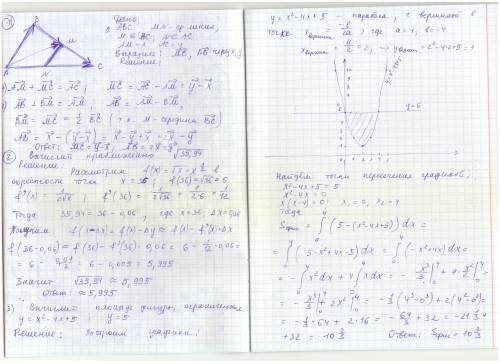 1) Дано:
ABC MN - ср. линия,
M ∈ BC, N ∈ AC
AM = x, AC = y
Выразить: MC, AB через x, y
Решение:
B
M
A N C
1) AM + MC = AC; MC = AC - AM = y - x
2) AB + BM = AM; AB = AM - BM,
BM = MC = 1/2 BC (т.к. M - середина BC)
AB = x - (y - x) = x - y + x = 2x - y
Ответ: MC = y - x, AB = 2x - y
2) Вычислить приближённо √35,94
Решение:
Рассмотрим f(x) = √x = x^1/2 в
окрестности точки x = 36; f(36) = √36 = 6
f'(x) = 1/2√x; f'(36) = 1/2√36 = 1/2·6 = 1/12
Тогда 35,94 = 36 - 0,06, где x = 36; Δx = 0,06
f(36 - 0,06) ≈ f(36) - f'(36)·0,06 = 6 - 1/12·0,06 =
= 6 - 0,01/2 = 6 - 0,005 = 5,995
Значит √35,94 ≈ 5,995
Ответ: ≈ 5,995
3) Вычислить площадь фигуры, ограниченной
y = x² - 4x + 5 y = 5
Решение: Построим графики:
y = x² - 4x + 5 - парабола, с вершиной в
точке x верш = -b/2a, где a = 1, b = -4
x верш = 4/2 = 2, → y верш = 2² - 4·2 + 5 = 1
y = x² - 4x + 5
y = 5
Найдём точки пересечения графиков:
x² - 4x + 5 = 5
x² - 4x = 0
x(x - 4) = 0 x₁ = 0, x₂ = 4
Тогда
Sфиг = ∫₀⁴ (5 - (x² - 4x + 5)) dx =
= ∫₀⁴ (5 - x² + 4x - 5) dx = ∫₀⁴ (-x² + 4x) dx =
= -∫₀⁴ x² dx + 4 ∫₀⁴ x dx = - x³/3 |₀⁴ + 4·x²/2 |₀⁴ =
= - x³/3 |₀⁴ + 2x² |₀⁴ = -1/3 (4³ - 0³) + 2(4² - 0²) =
= -1/3 · 64 + 2·16 = -64/3 + 32 = -21 1/3 +
+ 32 = 10 2/3 Ответ: Sфиг = 10 2/3